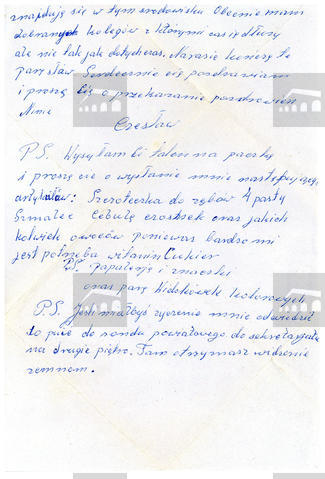 znajdują się w tym środowisku Obecnie mam
dobranych kolegów z którymi czas się dłuży
ale nie tak jak dotychczas. Narazie kończę te
parę słów Serdecznie cię pozdrawiam
i proszę Cię o przekazanie pozdrowień
Ninie
Czesław
P.S. Wysyłam Ci talon na paczkę
i proszę cię o wysłanie mnie następujących
artykułów: Szczoteczka do zębów 4 pasty
Smalec Cebulę czosnek oraz jakich
kolwiek owoców ponieważ bardzo mi
jest potrzeba witamin Cukier
P.S. Papeterię i znaczki
oraz parę Widokówek kolorowych
P.S. Jeśli miałbyś życzenie mnie odwiedzić
to pisz do sądu powiatowego do sekretariatu
na drugie piętro. Tam otrzymasz widzenie
zemnom.